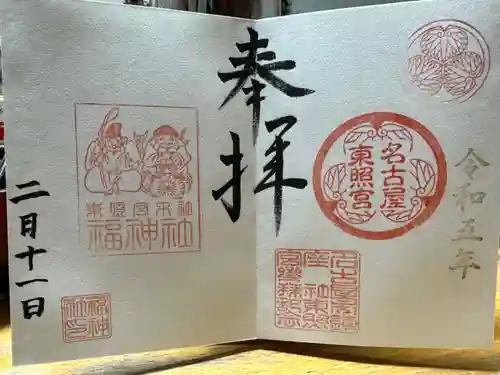 名古屋
東照宮
令和五年
奉拝
東照宮末社
福神社
二月十一日
福神
社印